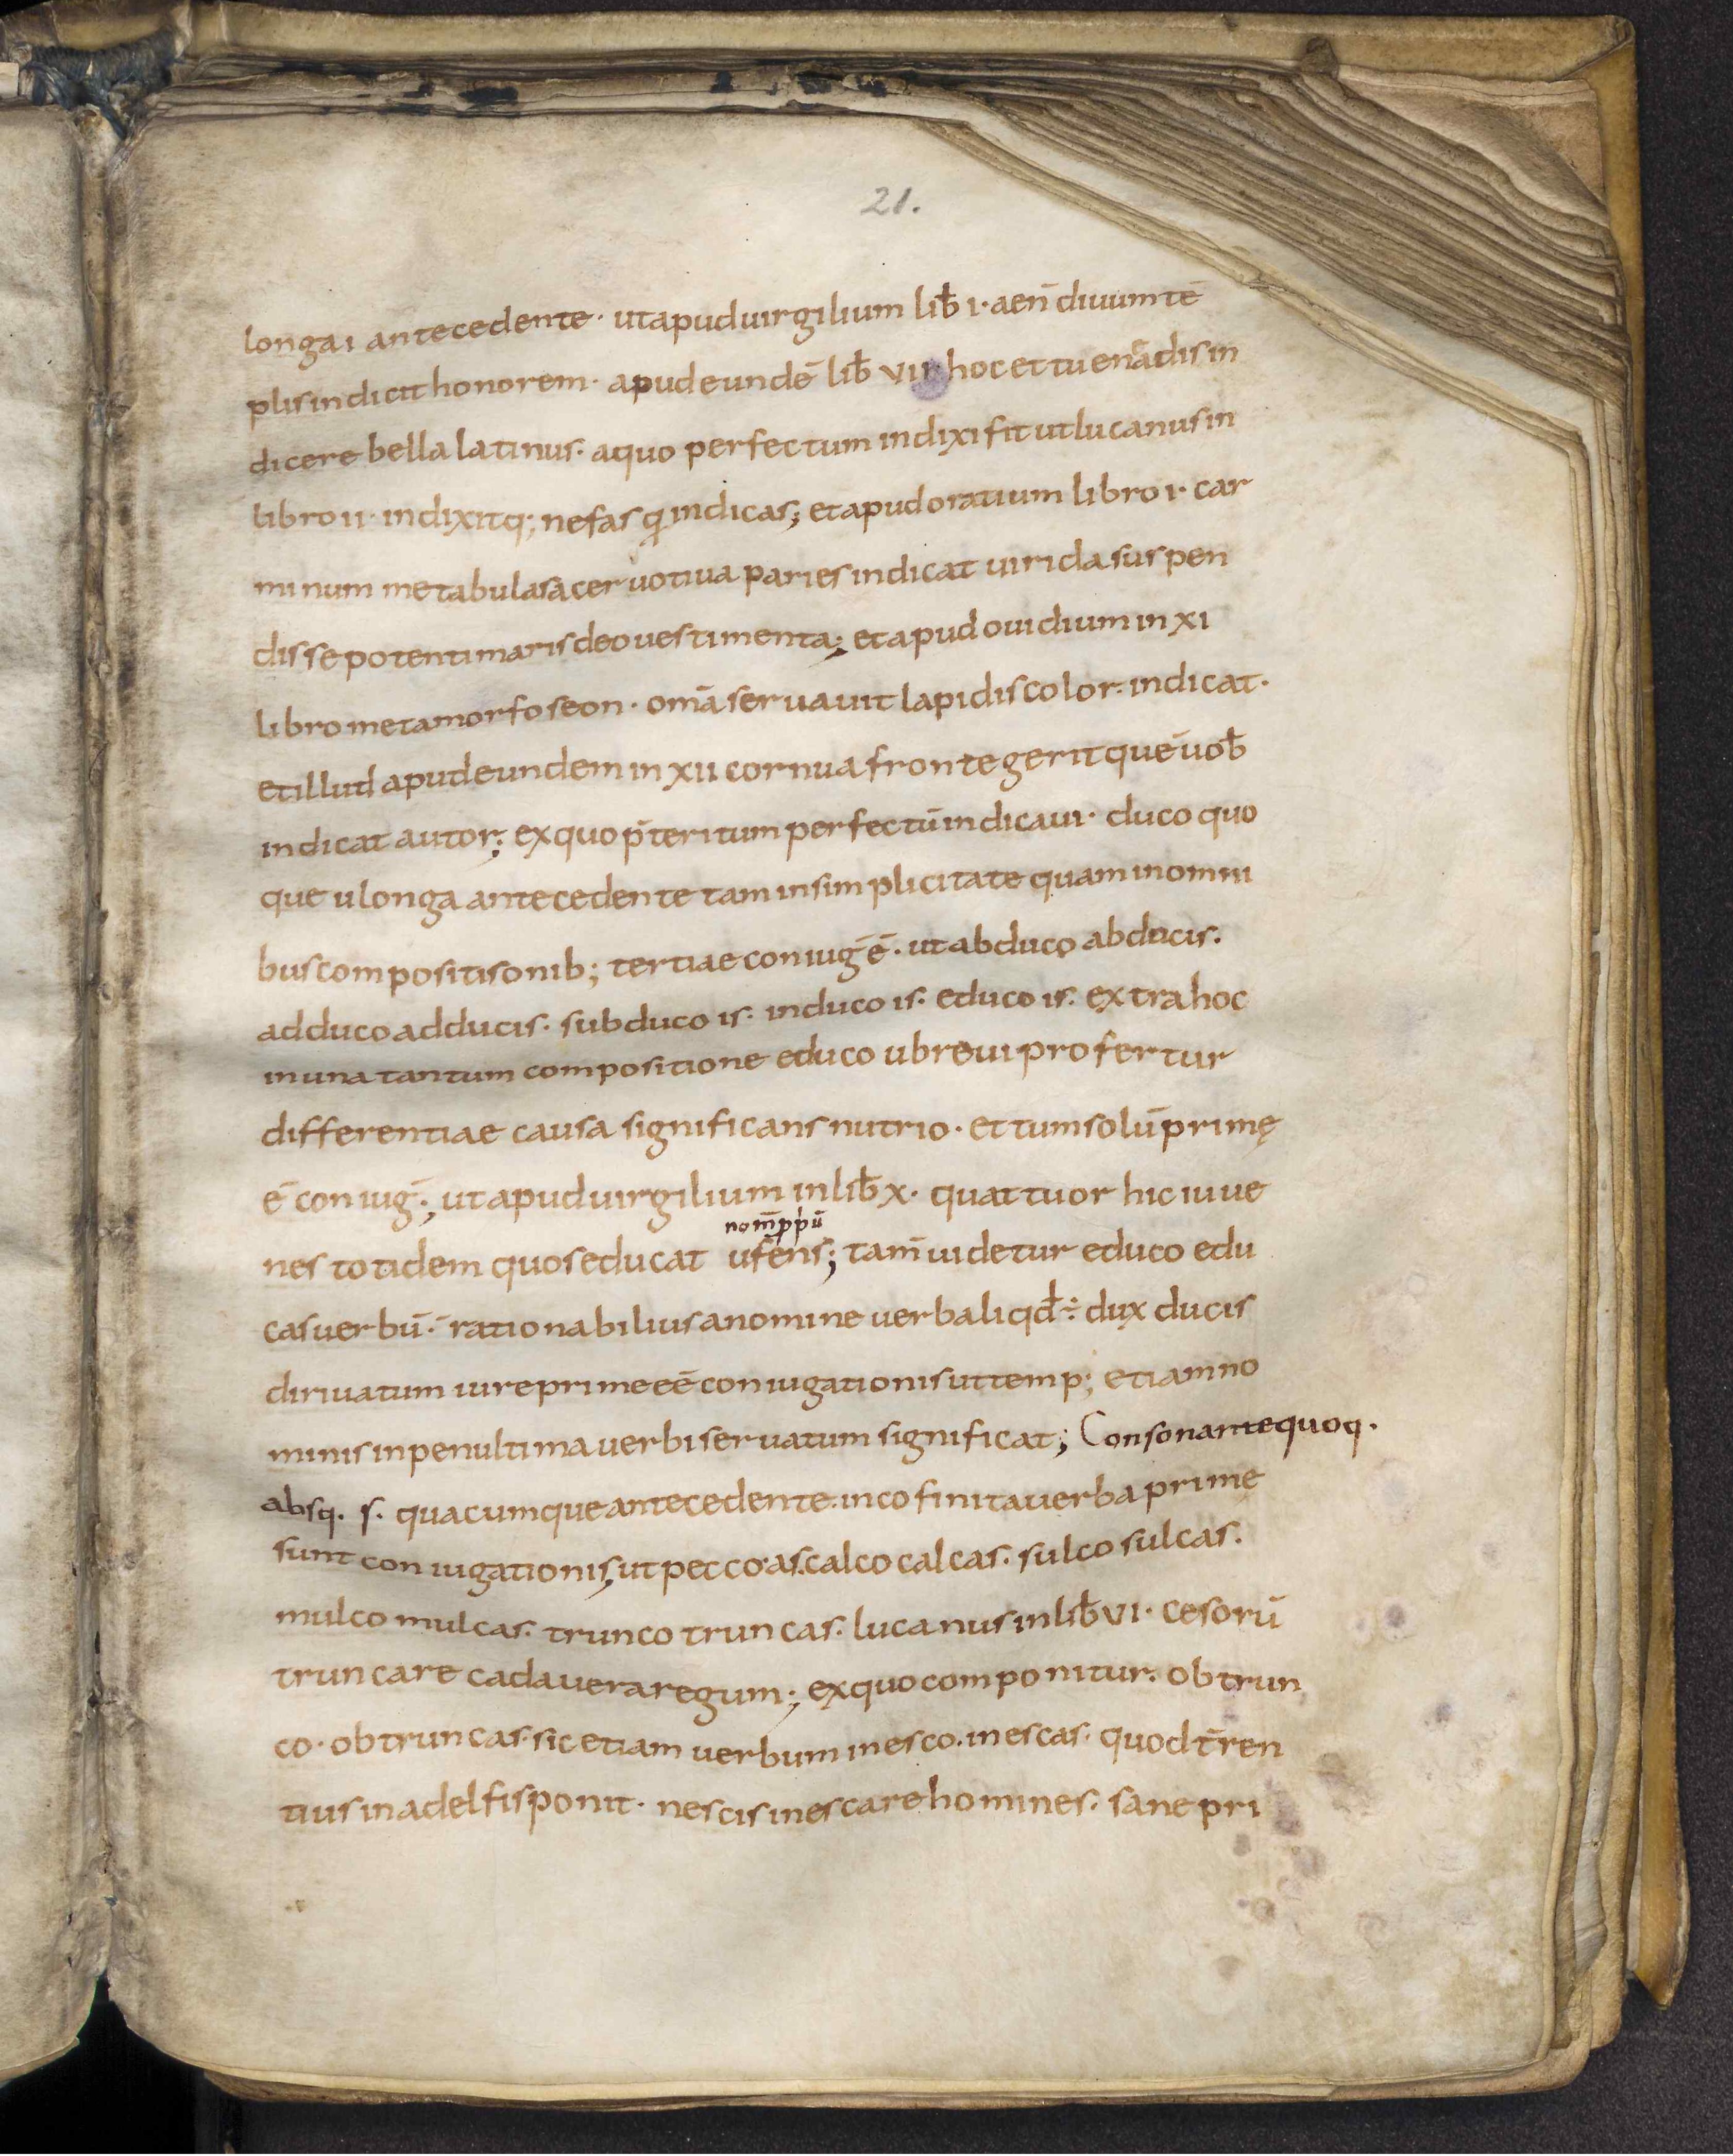 21.
longa i antecedente · ut apud uirgilium lib̄ i · aen̄ diuum tē
plis indicit honorem · apud eundē lib̄ vii · hoc et tu enādis in
dicere bella latinus · a quo perfectum indixi fit ut lucanus in
libro ii · indixitq; nefas q indicas; et apud oratium libro i · car
minum me tabula sacer uotiua paries indicat uirida suspen
disse potenti maris deo uestimenta; et apud ouidium in xi
libro metamorfoseon · om̄a seruauit lapidis color: indicat ·
et illud apud eundem in xii cornua fronte gerit quē uob̄
indicat autor; ex quo p̄teritum perfectū indicaui · duco quo
que u longa antecedente tam in simplicitate quam in omni
bus compositisonib; tertiae coniuḡ ē · ut abduco abducis ·
adduco adducis · subduco is · induco is · educo is · extra hoc
in una tantum compositione educo u breui profertur
differentiae causa significans nutrio · et tum solū primę
ē coniuḡ ; ut apud uirgilium in lib̄ x · quattuor hic iuue
nom̄ ppū
nes totidem quos educat ufens; tam̄ uidetur educo edu
cas uerbū · rationabilius a nomine uerbali qđ ÷ dux ducis
diriuatum iure prime eē coniugationis ut temp; etiam no
minis in penultima uerbi seruatum significat; Consonante quoq ·
absq · s · quacumque antecedente · in co finita uerba prime
sunt coniugationis, ut pecco · as · calco calcas · sulco sulcas ·
mulco mulcas · trunco truncas · lucanus in lib̄ vi · cesorū
truncare cadauera regum; ex quo componitur · obtrun
co · obtruncas · sic etiam uerbum inesco · inescas · quod t̄ren
tius in adelfis ponit · nescis inescare homines · sane pri